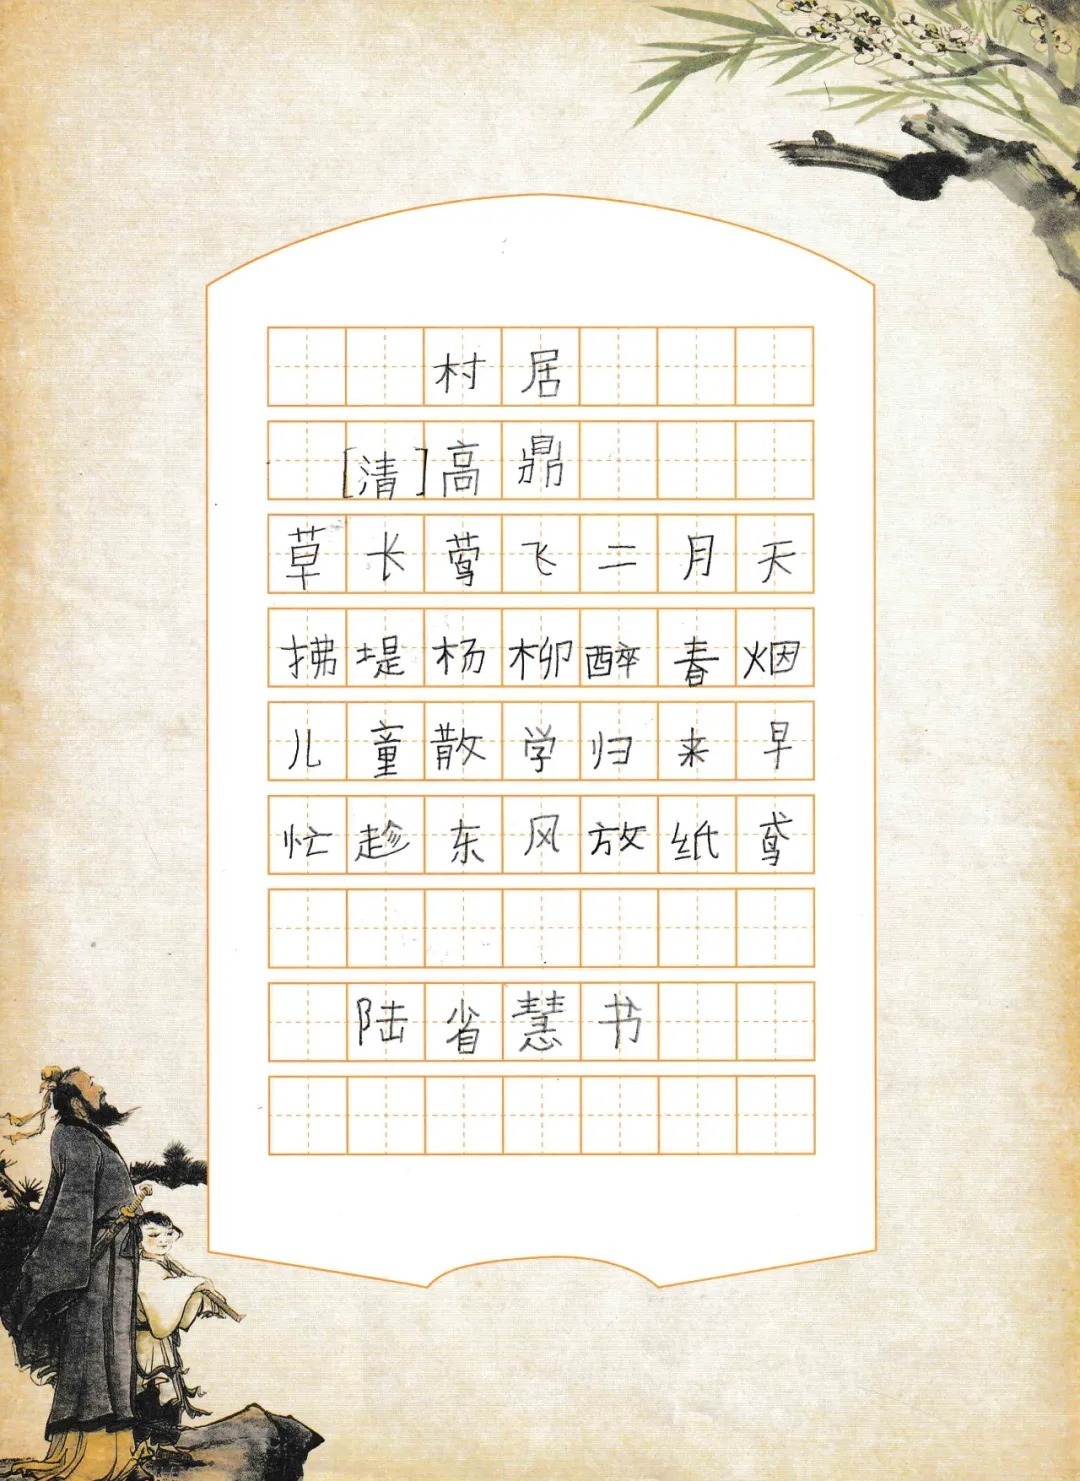 村居
[清]高鼎
草长莺飞二月天
拂堤杨柳醉春烟
儿童散学归来早
忙趁东风放纸鸢
陆省慧书